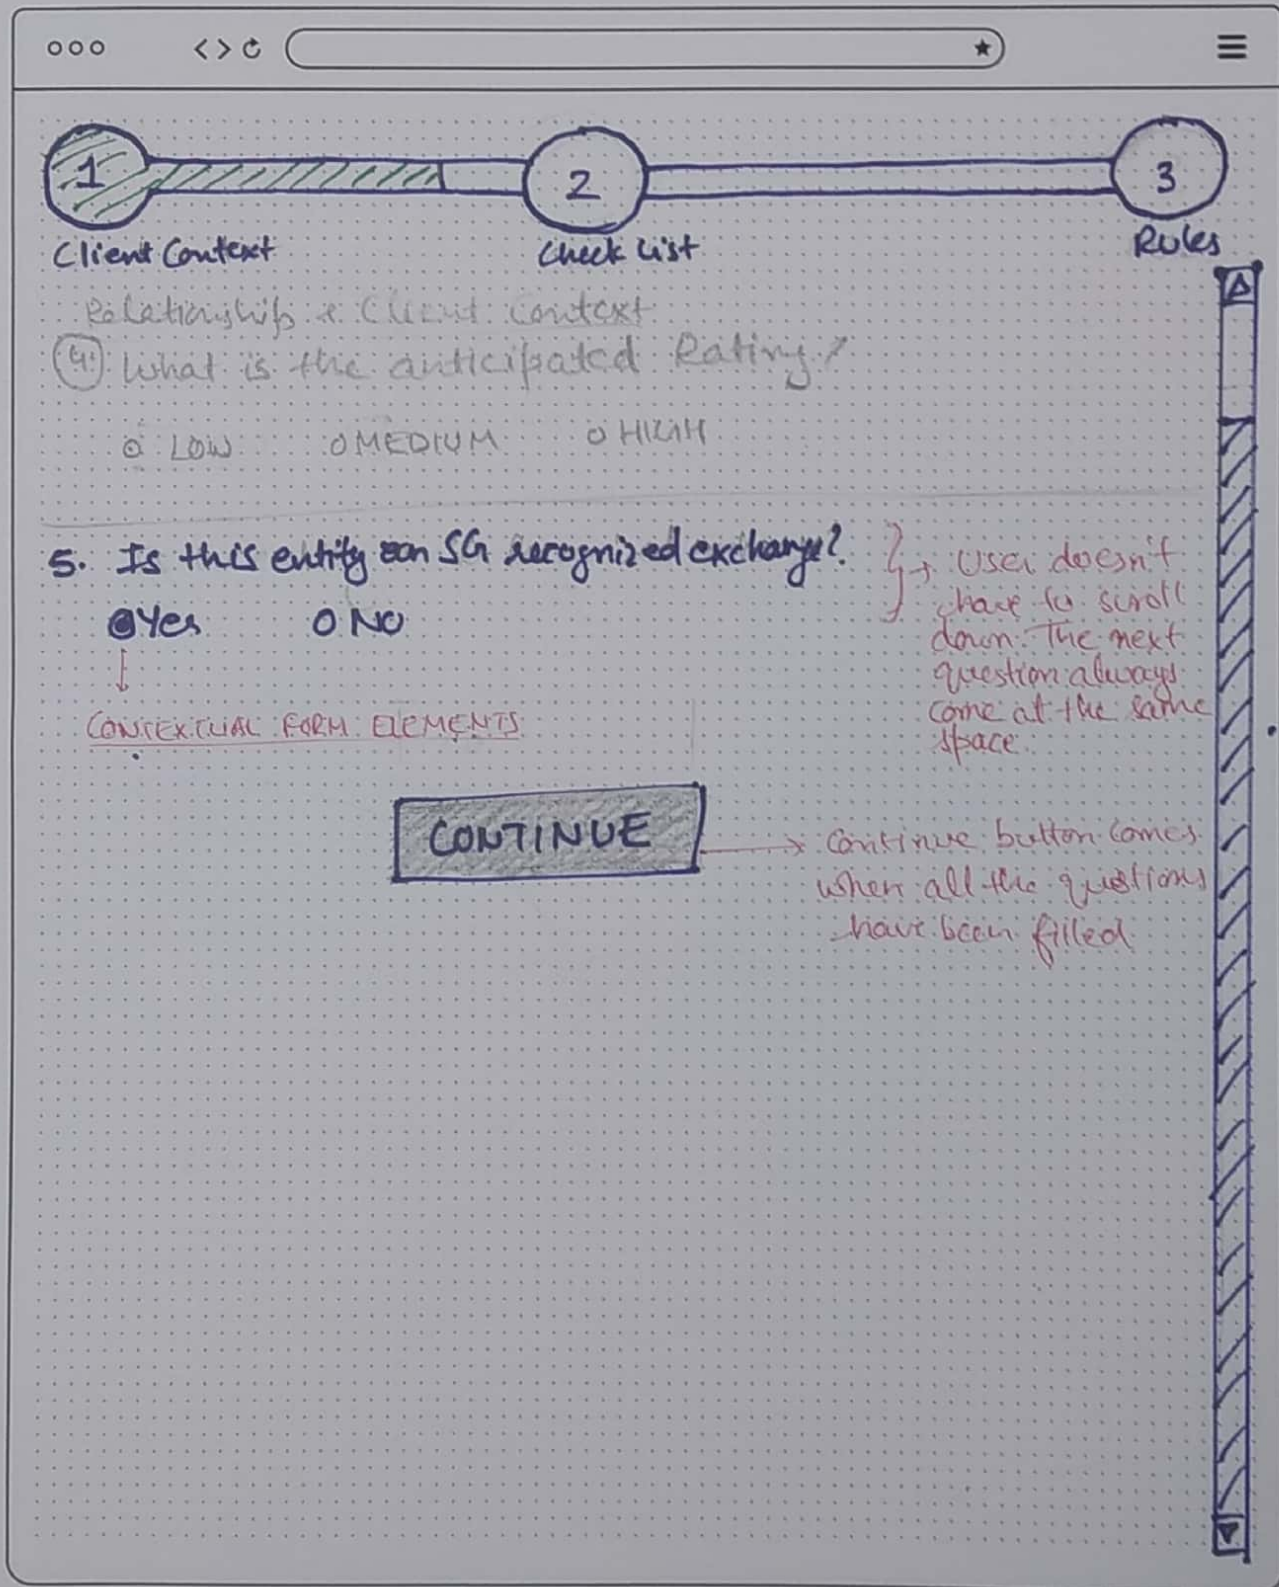 1
2
3
Client Context
Check List
Rules
Relationship & Client Context
4. What is the anticipated Rating?
LOW MEDIUM HIGH
5. Is this entity an SG recognized exchange?
Yes NO
CONTEXTUAL FORM ELEMENTS
User doesn't
have to scroll
down. The next
question always
come at the same
space.
CONTINUE
Continue button comes
when all the questions
have been filled